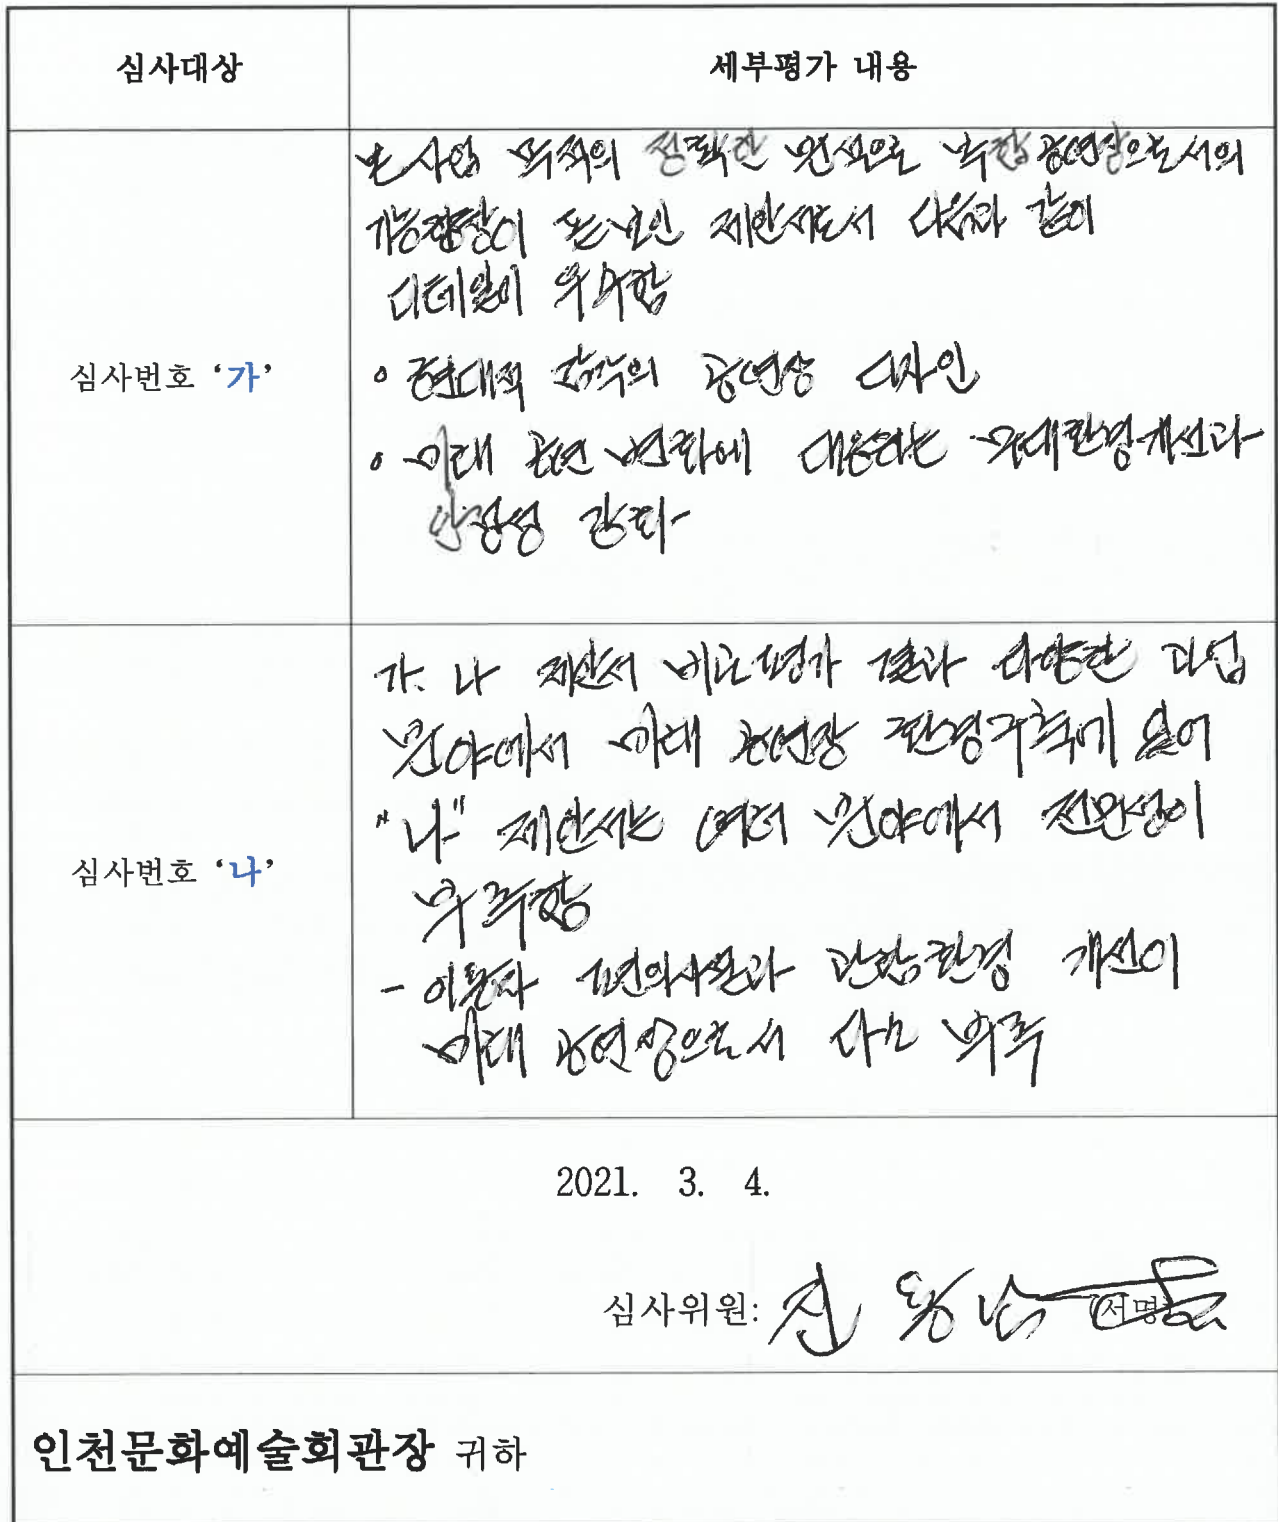 심사대상
세부평가 내용
본 사업 목적의 정확한 분석으로 복합공연장으로서의
가능 돋보인 제안서로서 다음과 같이
디테일이 우수함
심사번호 ‘가’
◦ 현대적 감각의 공연장 디자인
◦ 미래 공연 변화에 대응하는 무대환경개선과
안정성 강화
가. 나 제안서 비교평가 결과 다양한 과업
분야에서 미래 공연장 환경구축에 있어
"나" 제안서는 여러 분야에서 전문성이
심사번호 ‘나’
부족함
- 이용자 편의시설과 관람환경 개선이
미래 공연장으로서 다소 부족
2021. 3. 4.
심사위원: (서명)
인천문화예술회관장 귀하